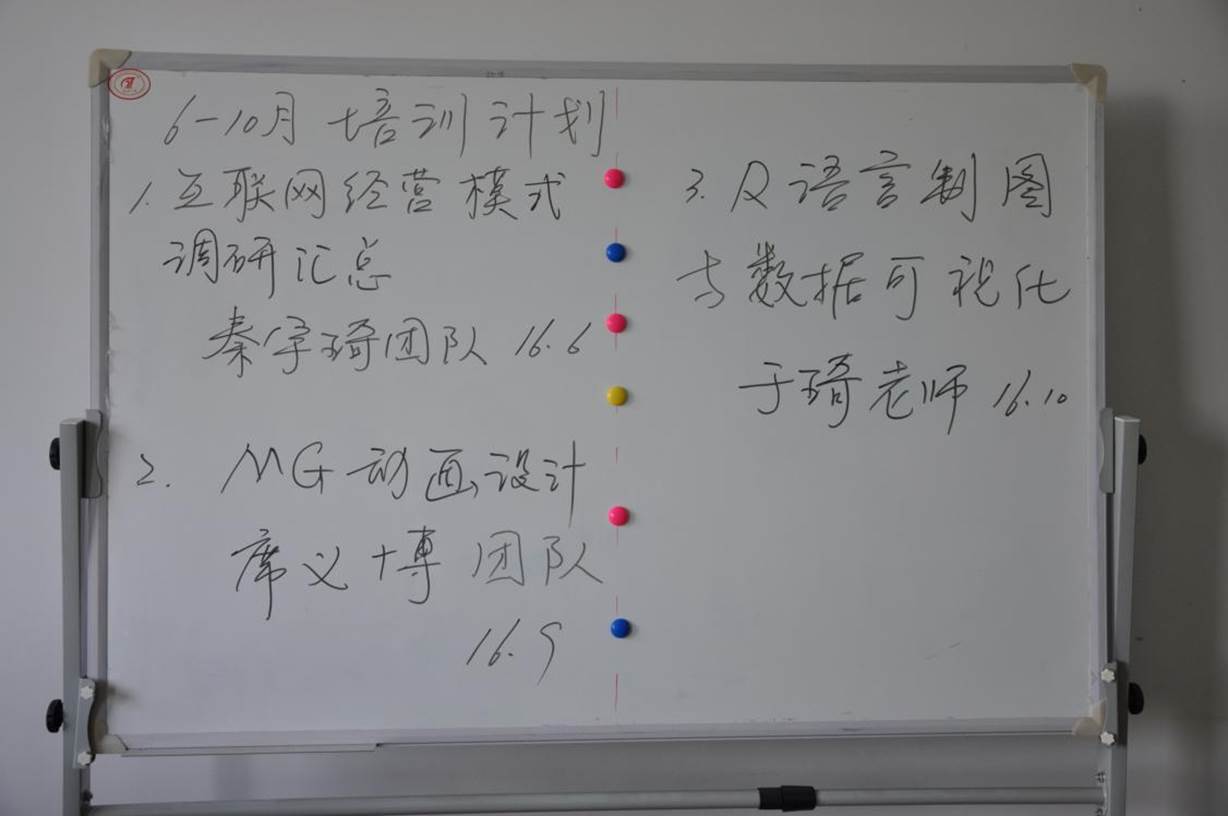 6-10月 培训计划
1. 互联网经营模式
调研汇总
秦宇琦团队 16.6
2. MG动画设计
席义博团队
16.9
3. R语言制图
与数据可视化
于琦老师 16.10